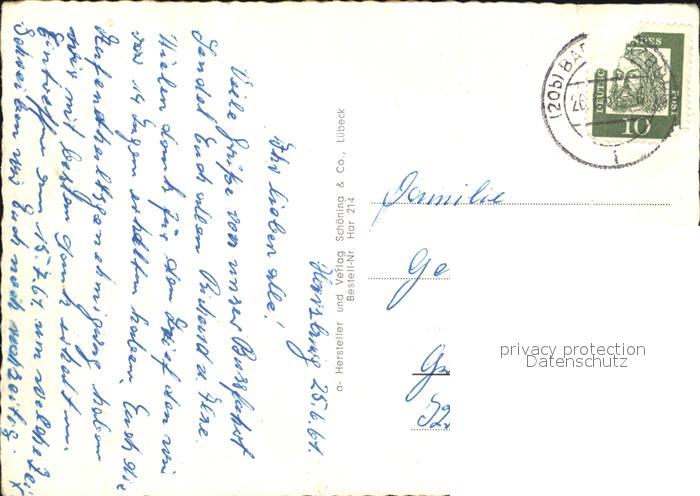 Harzburg 25.6.61
Ihr lieben alle!
Viele Grüße von unser Busfahrt
sendet Euch allen Richard u. Ilse.
Vielen dank für den Brief den wir
vor 14 Tagen erhalten haben. Auch die
Aufenthaltsgenehmigung haben
wir mit bestem dank erhalten.
Eintreffen am 15.7.61. um welche Zeit
Schreiben wir Euch noch rechtzeitig.
a- Hersteller und Verlag Schöning & Co., Lübeck
Bestell-Nr. Har 214
(20b) BAD
26.
DEUTSCHE
BUNDES
POST
10
Familie
Ge
52
privacy protection
Datenschutz